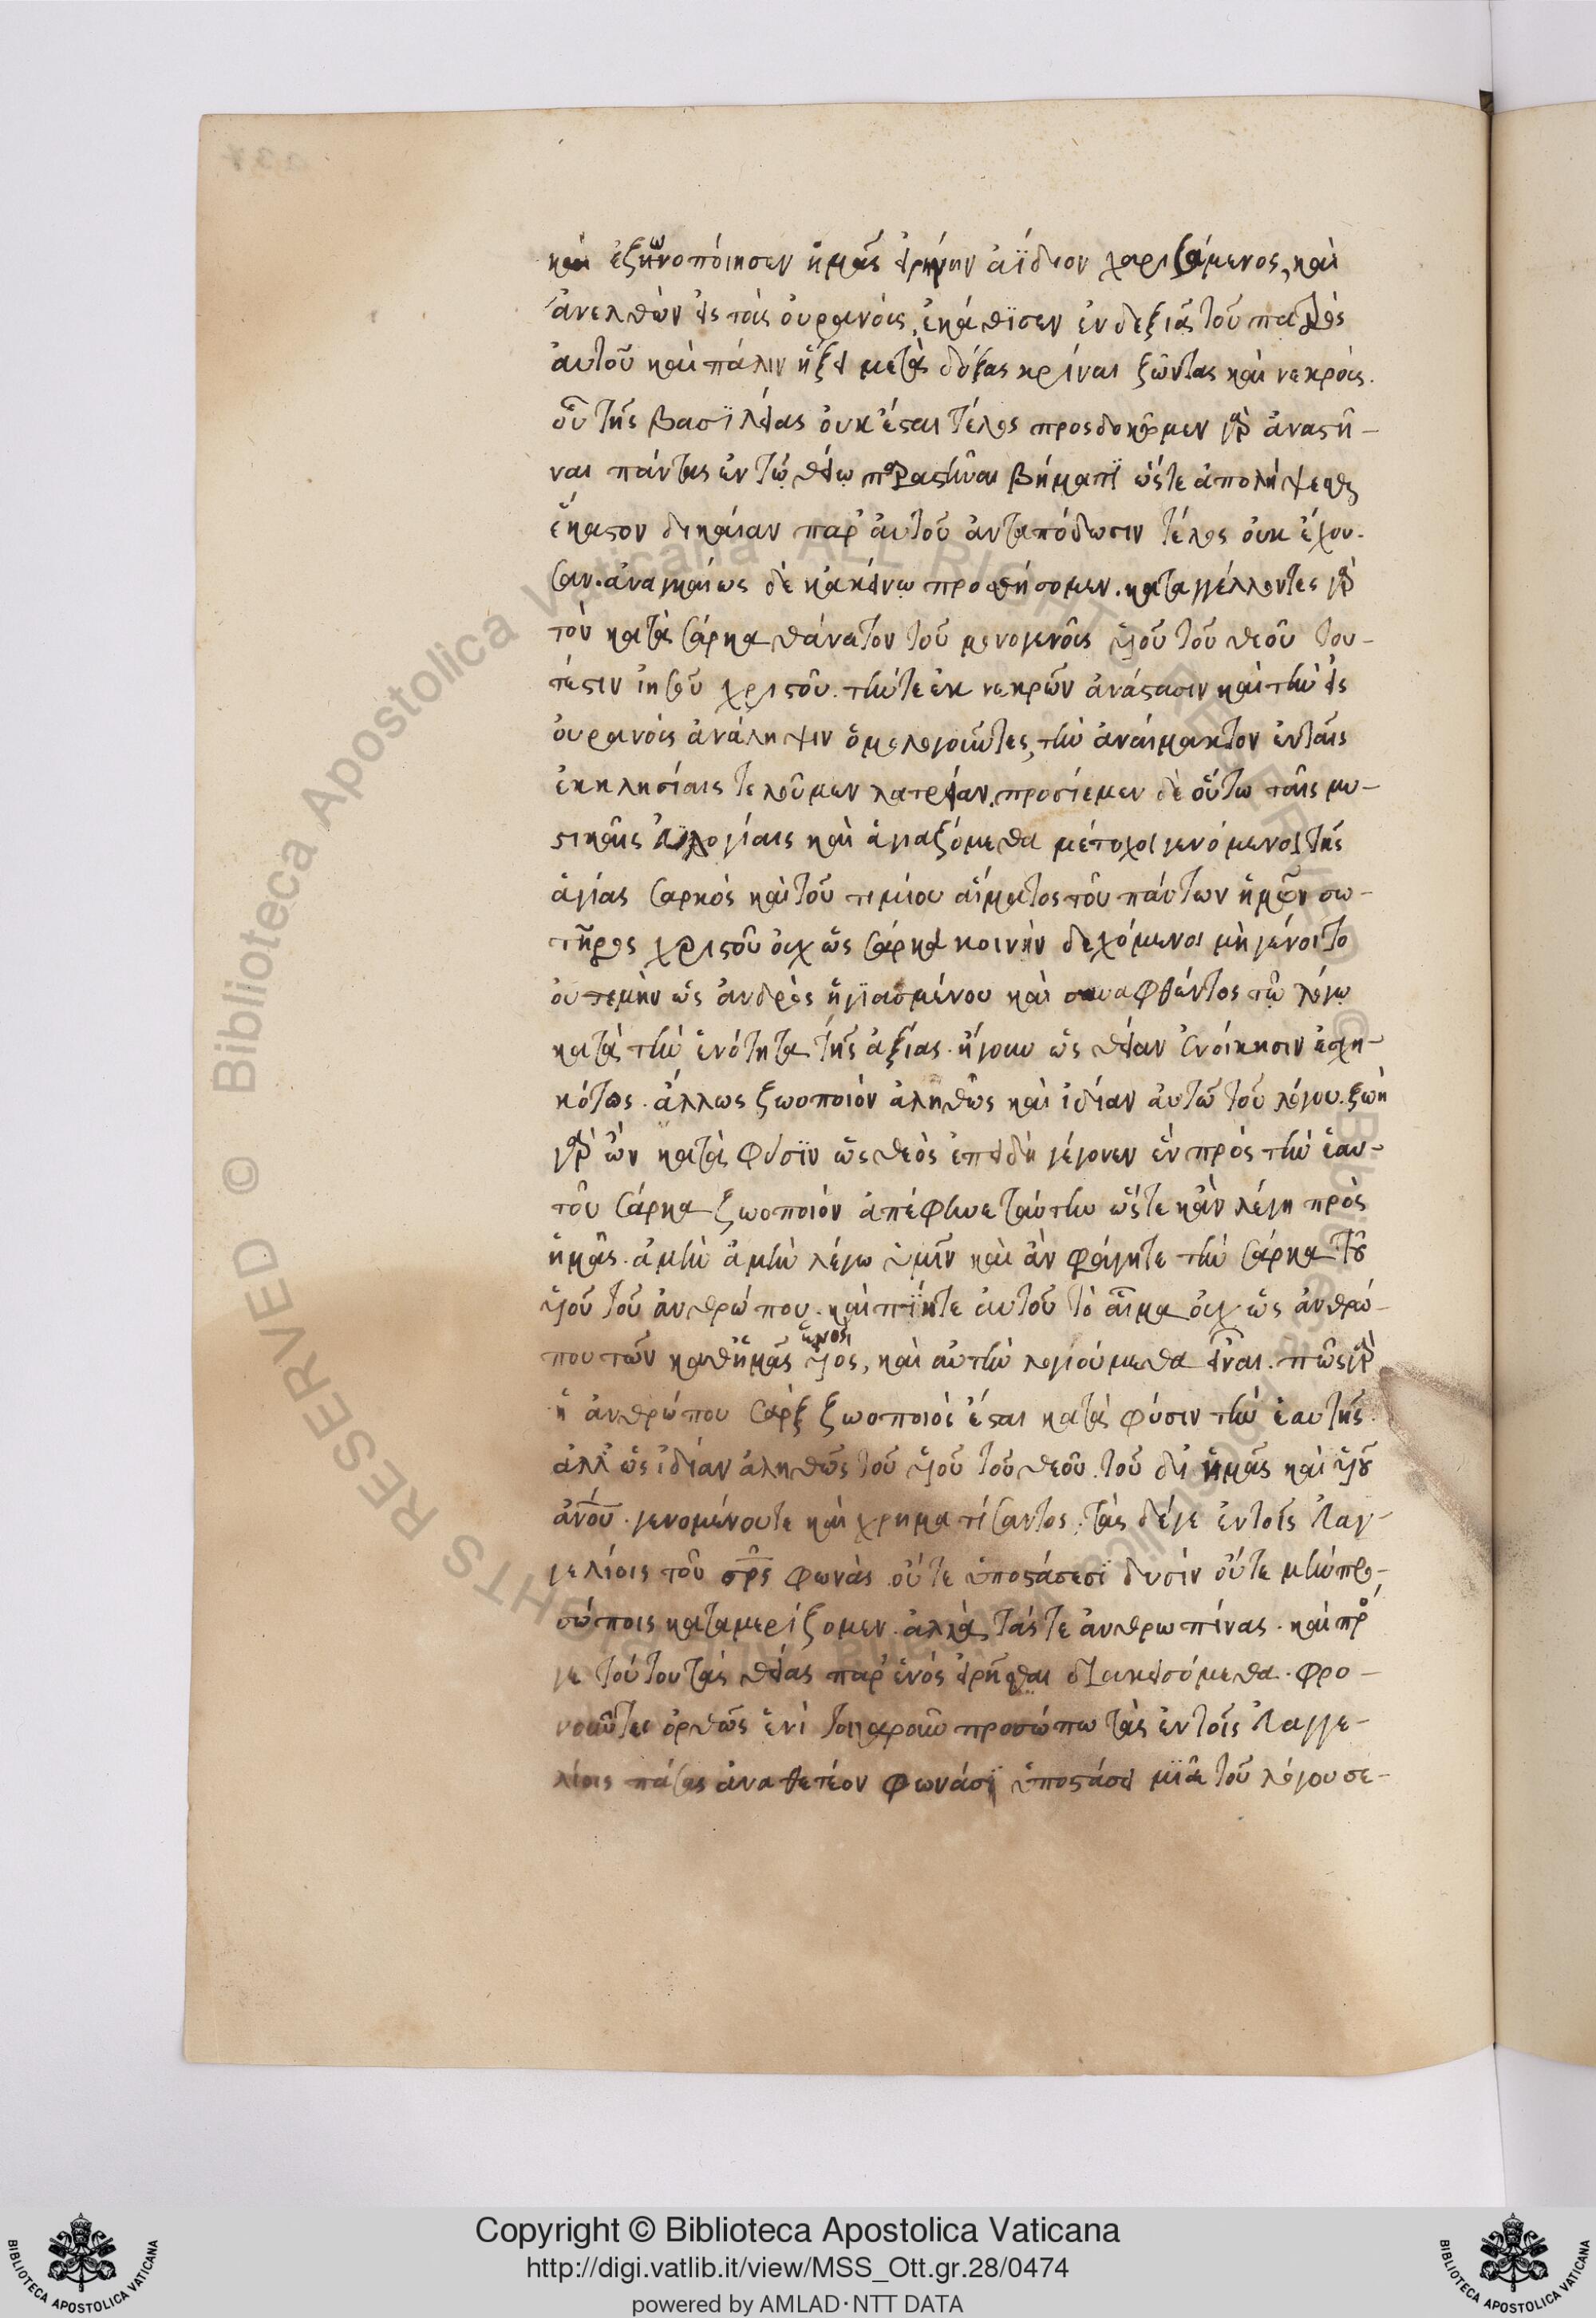 καὶ ἐξωνοποίησεν ἡμᾶς εἰρήνην ἀΐδιον χαρισάμενος, καὶ
ἀνελθὼν εἰς τοὺς οὐρανοὺς, ἐκάθϊσεν ἐν δεξιᾷ τοῦ πατρὸς
αὐτοῦ καὶ πάλιν ἥξει μετὰ δόξας κρῖναι ζῶντας καὶ νεκρούς.
οὗ τῆς βασϊλείας οὐκ ἔσται τέλος προσδοκῶμεν γὰρ ἀναστῆ-
ναι πάντας ἐν τῷ θείῳ παραστῆναι βήματϊ ὥστε ἀπολήψεσθαι
ἕκαστον δικαίαν παρ' αὐτοῦ ἀνταπόδωσιν τέλος οὐκ ἔχου-
σαν. ἀναγκαίως δὲ κἀκείνῳ προσθήσομεν. καταγγέλλοντες γὰρ
τὸν κατὰ σάρκα θάνατον τοῦ μονογενοῦς υἱοῦ τοῦ θεοῦ του-
τέστιν ἰησοῦ χριστοῦ. τήν τε ἐκ νεκρῶν ἀνάστασιν καὶ τὴν εἰς
οὐρανοὺς ἀνάληψιν ὁμολογοῦντες, τὴν ἀναίμακτον ἐν ταῖς
ἐκκλησίαις τελοῦμεν λατρείαν, πρόσιεμεν δὲ οὕτω ταῖς μυ-
στικαῖς εὐλογίαις καὶ ἁγιαζόμεθα μέτοχοι γενόμενοι τῆς
ἁγίας σαρκὸς καὶ τοῦ τιμίου αἵματος τοῦ πάντων ἡμῶν σω-
τῆρος χριστοῦ οὐχ ὡς σάρκα κοινὴν δεχόμενοι μὴ γένοιτο
οὔτε μὴν ὡς ἀνδρὸς ἡγϊασμένου καὶ συναφθέντος τῷ λόγῳ
κατὰ τὴν ἑνότητα τῆς ἀξίας. ἤγουν ὡς θείαν ἐνοίκησιν ἐσχη-
κότος. ἀλλ' ὡς ζωοποιὸν ἀληθῶς καὶ ἰδίαν αὐτῶ τοῦ λόγου. ζωὴ
γὰρ ὢν κατὰ φύσϊν ὡς θεὸς ἐπειδὴ γέγονεν ἓν πρὸς τὴν ἑαυ-
τοῦ σάρκα ζωοποιὸν ἀπέφηνε ταύτην ὥστε κἂν λέγη πρὸς
ἡμᾶς. ἀμὴν ἀμὴν λέγω ὑμῖν καὶ ἂν φάγητε τὴν σάρκα τοῦ
υἱοῦ τοῦ ἀνθρώπου. καὶ πϊητε αὐτοῦ τὸ αἷμα οὐχ ὡς ἀνθρώ-
που τῶν καθ' ἡμᾶς ἑνὸς, καὶ αὐτὴν λογιούμεθα εἶναι. πῶς γὰρ
ἡ ἀνθρώπου σὰρξ ζωοποιὸς ἔσται κατὰ φύσιν τὴν ἑαυτῆς.
ἀλλ' ὡς ἰδίαν ἀληθῶς τοῦ υἱοῦ τοῦ θεοῦ. τοῦ δι' ἡμᾶς καὶ υἱοῦ
ἀνου. γενομένου τε καὶ χρηματίσαντος. τὰς δέ γε ἐν τοῖς εὐαγ-
γελίοις τοῦ σρς φωνὰς οὔτε ὑποστάσεσϊ δυσὶν οὔτε μὴν προ-
σώποις καταμερίζομεν. ἀλλὰ τάς τε ἀνθρωπίνας. καὶ πρό
γε τούτου τὰς θείας παρ' ἑνὸς εἰρῆσθαι διακεισόμεθα. φρο-
νοῦντες ὀρθῶς ἑνὶ τοιγαροῦν προσώπω τὰς ἐν τοῖς εὐαγγε-
λίοις πάσας ἀναθετέον φωνάσϊ ὑποστάσει μϊᾶ τοῦ λόγου σε-